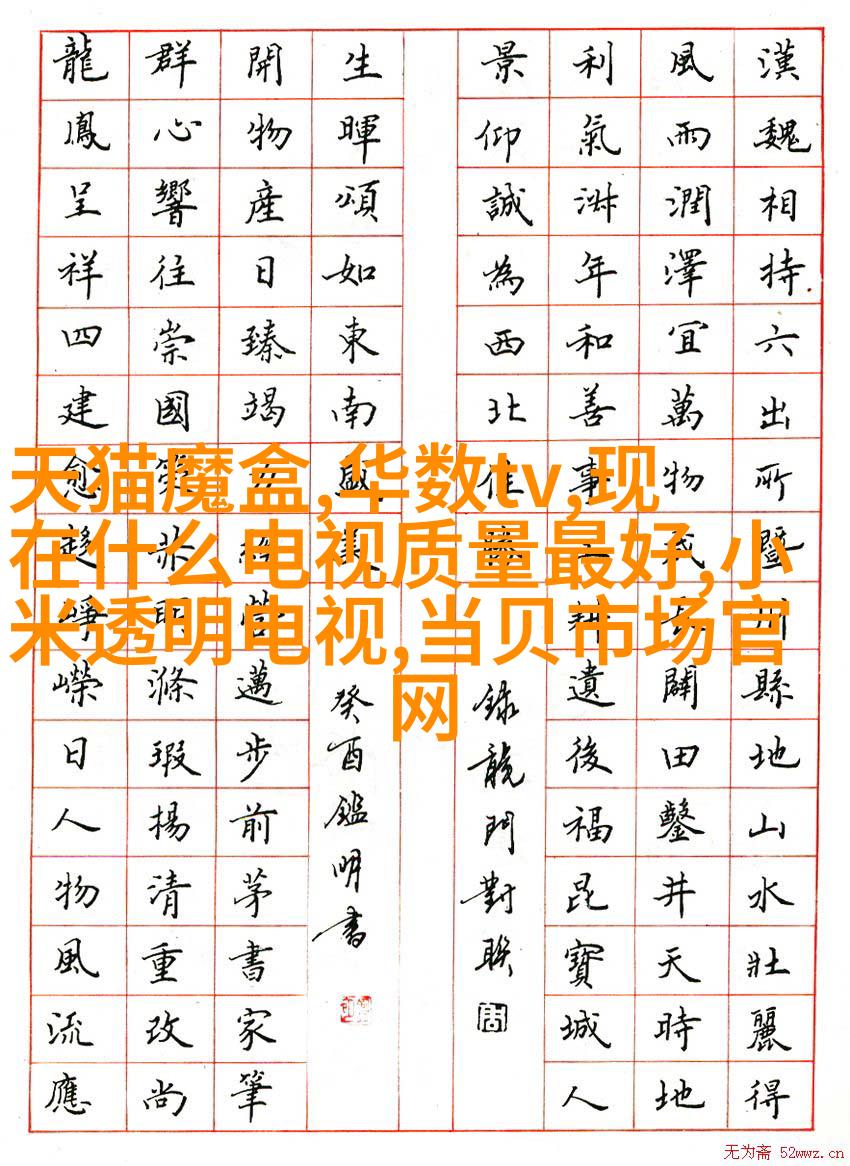 漢魏相持六出所暨川縣地山水壯麗得
風雨潤澤宜萬物成長闢田鑿井天時地
利氣淑年和善事耕遺後福昆寶城人
景仰誠為西北佳勝
錄龍門對聯
龍鳳呈祥四建愈趨崢嶸日人物風流應
群心響往崇國策明滌瑕揚清重改尚
開物產日臻竭力營邁步前茅書家筆
生暉頌如東南盛美
癸酉鑑明書
天猫魔盒,华数tv,现
在什么电视质量最好,小
米透明电视,当贝市场官
网
无为斋 52wwz.cn